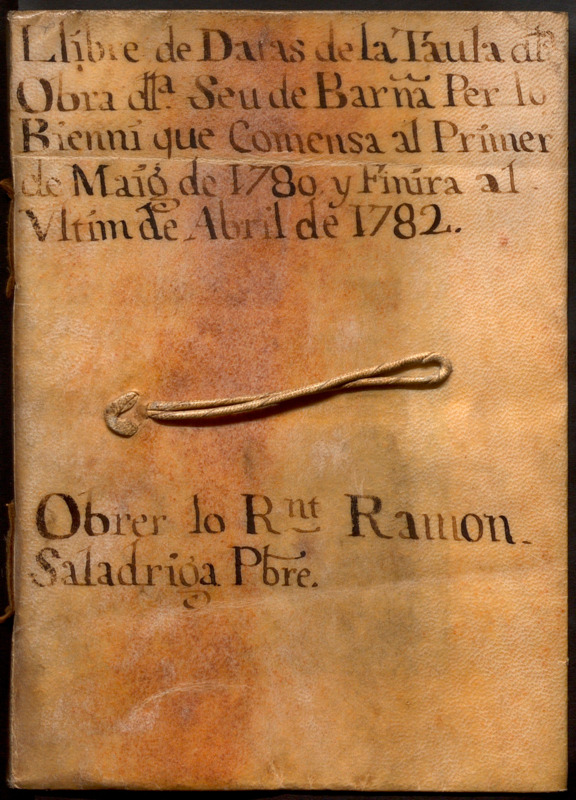 Llibre de Datas de la Taula dla
Obra dlla. Seu de Barña Per lo
Bienni que Comensa al Primer
de Maig de 1780, y Finira al
Vltim de Abril de 1782.
Obrer lo Rnt Ramon
Saladriga Pbre.